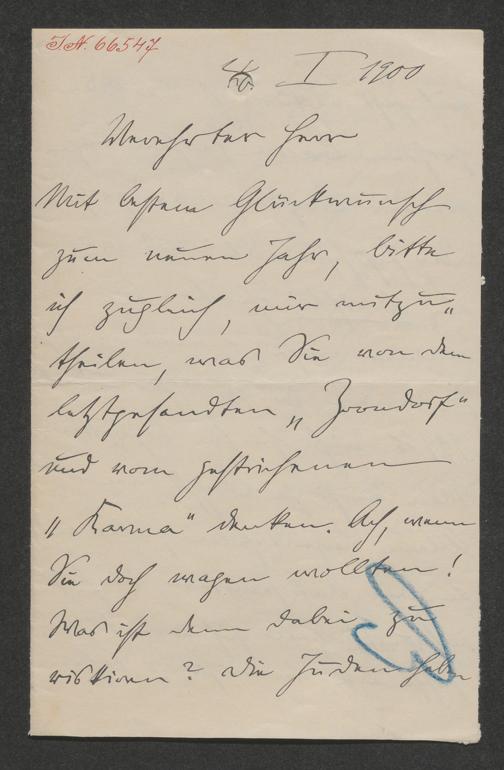 I.N. 66547
I 1900
Verehrter Herr
Mit bestem Glückwunsch
zum neuen Jahr, bitte
ich zugleich, mir mitzu„
theilen, was Sie von dem
letztgesandten „Zorndorf“
und vom gestrichenen
„Karma“ denken. Ach, wenn
Sie doch wagen wollten!
Was ist denn dabei zu
riskiren? Die Juden haben